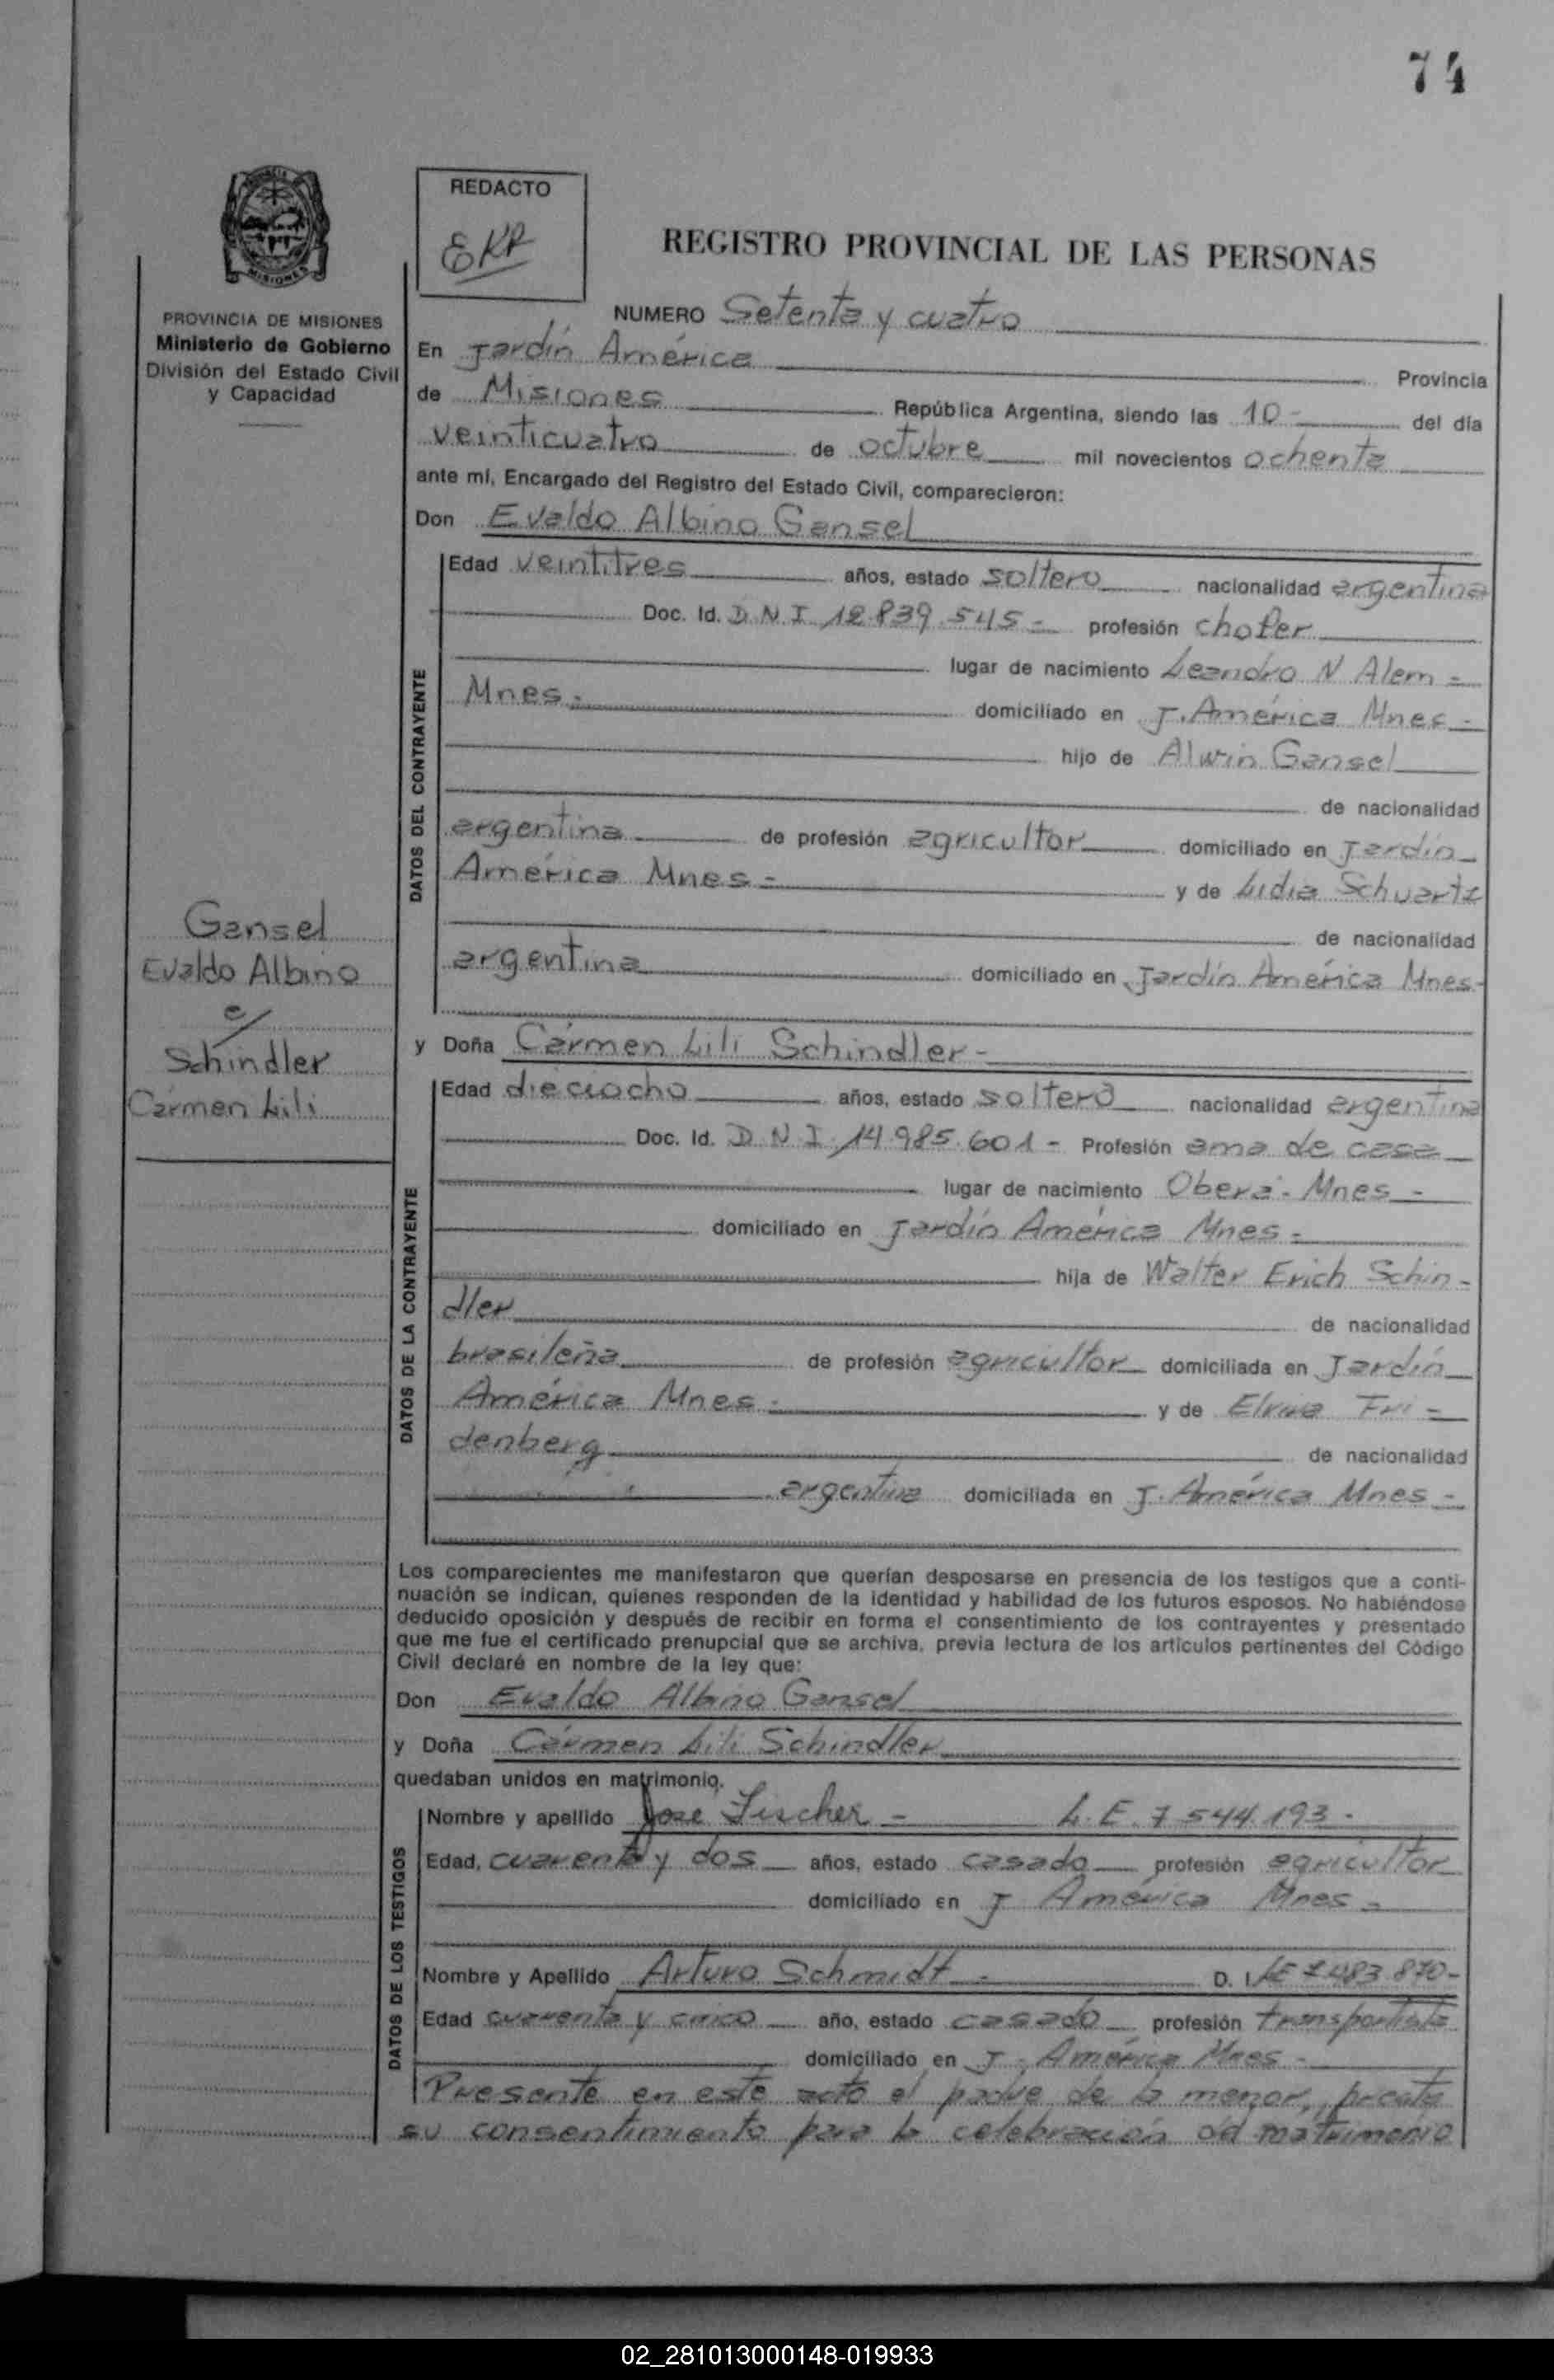 74
REDACTO
EKR
REGISTRO PROVINCIAL DE LAS PERSONAS
PROVINCIA DE MISIONES
Ministerio de Gobierno
División del Estado Civil
y Capacidad
NUMERO Setenta y cuatro
En Jardín América Provincia
de Misiones República Argentina, siendo las 10- del día
veinticuatro de octubre mil novecientos ochenta
ante mí, Encargado del Registro del Estado Civil, comparecieron:
Don Evaldo Albino Gansel
DATOS DEL CONTRAYENTE
Edad veintitres años, estado soltero nacionalidad argentina
Doc. Id. D.N.I 12.839.545- profesión chofer
lugar de nacimiento Leandro N Alem -
Mnes- domiciliado en J. América Mnes-
hijo de Alwin Gansel
de nacionalidad
argentina de profesión agricultor domiciliado en Jardín
América Mnes- y de Lidia Schuartz
de nacionalidad
argentina domiciliado en Jardín América Mnes-
Gansel
Evaldo Albino
c/
Schindler
Cármen Lili
y Doña Cármen Lili Schindler-
DATOS DE LA CONTRAYENTE
Edad dieciocho años, estado soltera nacionalidad argentina
Doc. Id. D.N.I. 14.985.601- Profesión ama de casa
lugar de nacimiento Oberá- Mnes-
domiciliado en Jardín América Mnes-
hija de Walter Erich Schin-
dler de nacionalidad
brasileña de profesión agricultor domiciliada en Jardín
América Mnes- y de Elvira Fri-
denberg de nacionalidad
argentina domiciliada en J. América Mnes-
Los comparecientes me manifestaron que querían desposarse en presencia de los testigos que a conti-
nuación se indican, quienes responden de la identidad y habilidad de los futuros esposos. No habiéndose
deducido oposición y después de recibir en forma el consentimiento de los contrayentes y presentado
que me fue el certificado prenupcial que se archiva, previa lectura de los artículos pertinentes del Código
Civil declaré en nombre de la ley que:
Don Evaldo Albino Gansel
y Doña Cármen Lili Schindler
quedaban unidos en matrimonio.
DATOS DE LOS TESTIGOS
Nombre y apellido Jose Fischer - L.E. 7.544.193-
Edad, cuarenta y dos años, estado casado profesión agricultor
domiciliado en J América Mnes-
Nombre y Apellido Arturo Schmidt - D. I. LE 7.483.870-
Edad cuarenta y cinco año, estado casado profesión transportista
domiciliado en J. América Mnes-
Presente en este acto el padre de la menor, presta
su consentimiento para la celebración del matrimonio
02_281013000148-019933